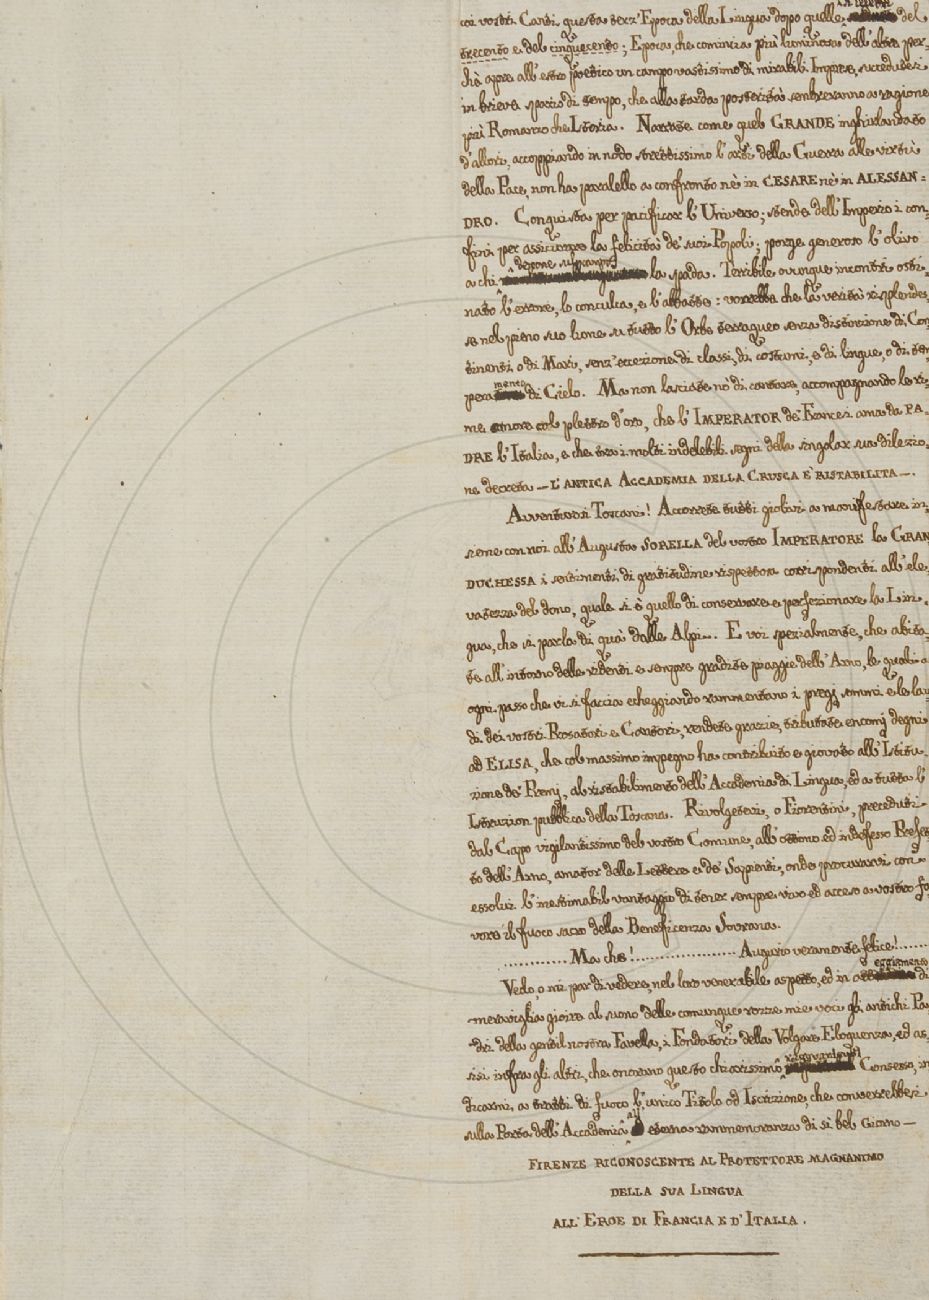 coi vostri Canti questa terz'Epoca della Lingua dopo quelle del
trecento e del cinquecento; Epoca, che comincia più luminosa dell'altre per,
chè apre all'estro poetico un campo vastissimo di mirabili Imprese, succedutesi
in brieve spazio di tempo, che alla tarda posterità sembreranno a ragione
più Romanzo che Istoria. Narrate come quel GRANDE inghirlandato
d'allori, accoppiando in nodo strettissimo l'arti della Guerra alle virtù
della Pace, non ha paralello a confronto nè in CESARE nè in ALESSAN=
DRO. Conquista per pacificar l'Universo; stende dell'Imperio i con,
fini per assicurare la felicità de' suoi Popoli; porge generoso l'olivo
a chi depone la spada. Terribile ovunque incontri osti,
nato l'errore, lo conculca, e l'abbatte: vorrebbe che la verità risplendes,
se nel pieno suo lume su tutto l'Orbe terraqueo senza distinzione di Con
tinenti, o di Mari, senz'eccezione di classi, di costumi, e di lingue, o di tem
peramento di Cielo. Ma non lasciate nò di cantare, accompagnando le ri,
me col plettro d'oro, che l'IMPERATOR de' Francesi ama da PA,
DRE l'Italia, e che tra i molti indelebili segni della singolar sua dilezio,
ne decreta — L'ANTICA ACCADEMIA DELLA CRUSCA È RISTABILITA —.
Avventurosi Toscani! Accorrete tutti giolivi a manifestare in,
sieme con noi all'Augusta SORELLA del vostro IMPERATORE la GRAN
DUCHESSA i sentimenti di gratitudine rispettosa corrispondenti all'ele,
vatezza del dono, quale si è quello di conservare e perfezionare la Lin,
gua, che si parla di quà dalle Alpi. E voi spezialmente, che abita,
te all'intorno delle ridenti e sempre gradite piaggie dell'Arno, le quali a
ogni passo che vi si faccia echeggiando rammentano i pregj sommi e le lau
di dei vostri Prosatori e Cantori, rendete grazie, tributate encomj degni
ad ELISA, che col massimo impegno ha contribuito e giovato all'Istitu,
zione de' Premj, al ristabilimento dell'Accademia di Lingua, ed a tutta l'
Istruzion pubblica della Toscana. Rivolgetevi, o Fiorentini, preceduti
dal Capo vigilantissimo del vostro Comune, all'ottimo ed indefesso Prefet
to dell'Arno, amator delle Lettere e de' Sapienti, onde procurarvi con
essolui l'inestimabil vantaggio di tener sempre vivo ed acceso a vostro fa
vore il fuoco sacro della Beneficenza Sovrana.
............ Ma che! .................... Augurio veramente felice! ......
Vedo, o mi par di vedere, nel loro venerabile aspetto, ed in di
meraviglia gioire al suono delle comunque rozze mie voci gli antichi Pa
dri della gentil nostra Favella, i Fondatori della Volgare Eloquenza, ed as,
sisi infra gli altri, che onorano questo chiarissimo Consesso, in
dicarmi a tratti di fuoco l'unico Titolo od Iscrizione, che converrebbesi
sulla Porta dell'Accademia eterna rammemoranza di sì bel Giorno —
FIRENZE RICONOSCENTE AL PROTETTORE MAGNANIMO
DELLA SUA LINGUA
ALL'EROE DI FRANCIA E D'ITALIA.